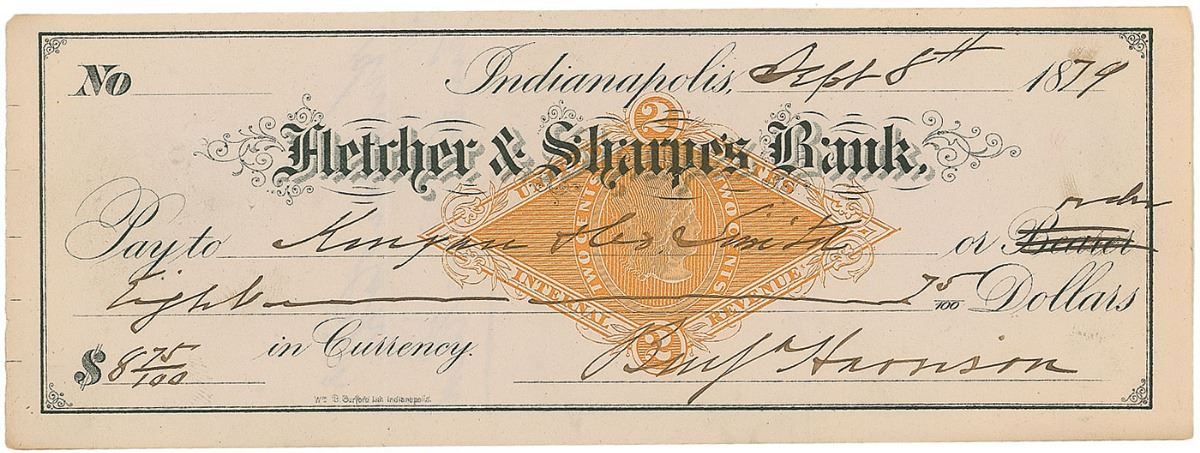 No Indianapolis, Sept 8th 1879
Fletcher & Sharpe's Bank,
2
UNITED STATES
TWO CENTS TWO CENTS
order
Pay to Smith or Bearer
Eight 75/100 Dollars
INTERNAL REVENUE
2
$ 8 75/100 in Currency. Benja Harrison
Wm. B. Burford, Lith. Indianapolis.